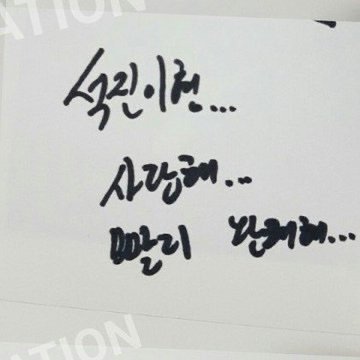 ATION
석진이형...
사랑해...
빨리 완쾌해...
ATION